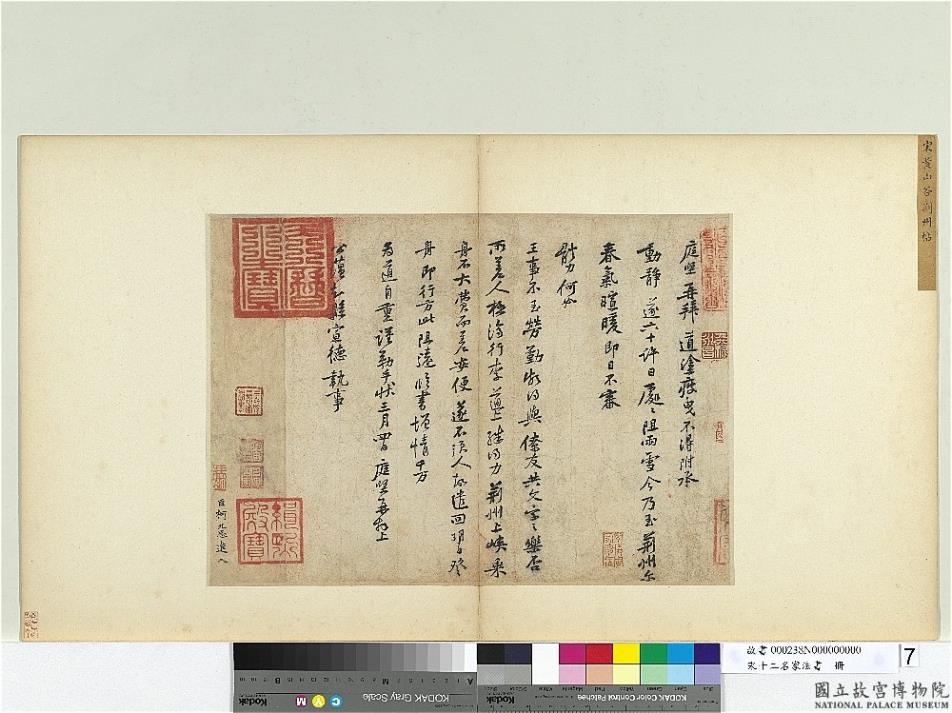 宋黃山谷荊州帖
庭堅再拜道塗疲曳不得附承
動靜遂六十許日處處阻雨雪今乃至荊州爾
春氣暄暖即日不審
體力何如
王事不至勞勤頗得與僚友共文字之樂否
所差人極濟行李道上殊得力荊州上峽乘
舟不大費而差安便遂不須人故遣回明日登
舟即行方此阻遠臨書增情千万
為道自重謹勒手狀三月四日庭堅再拜上
公蘊知縣宣德執事
臣柯九思進入
KODAK Gray Scale
KODAK Color Control Patches
故書000238N000000000
宋十二名家法書 冊
7
國立故宮博物院
NATIONAL PALACE MUSEUM